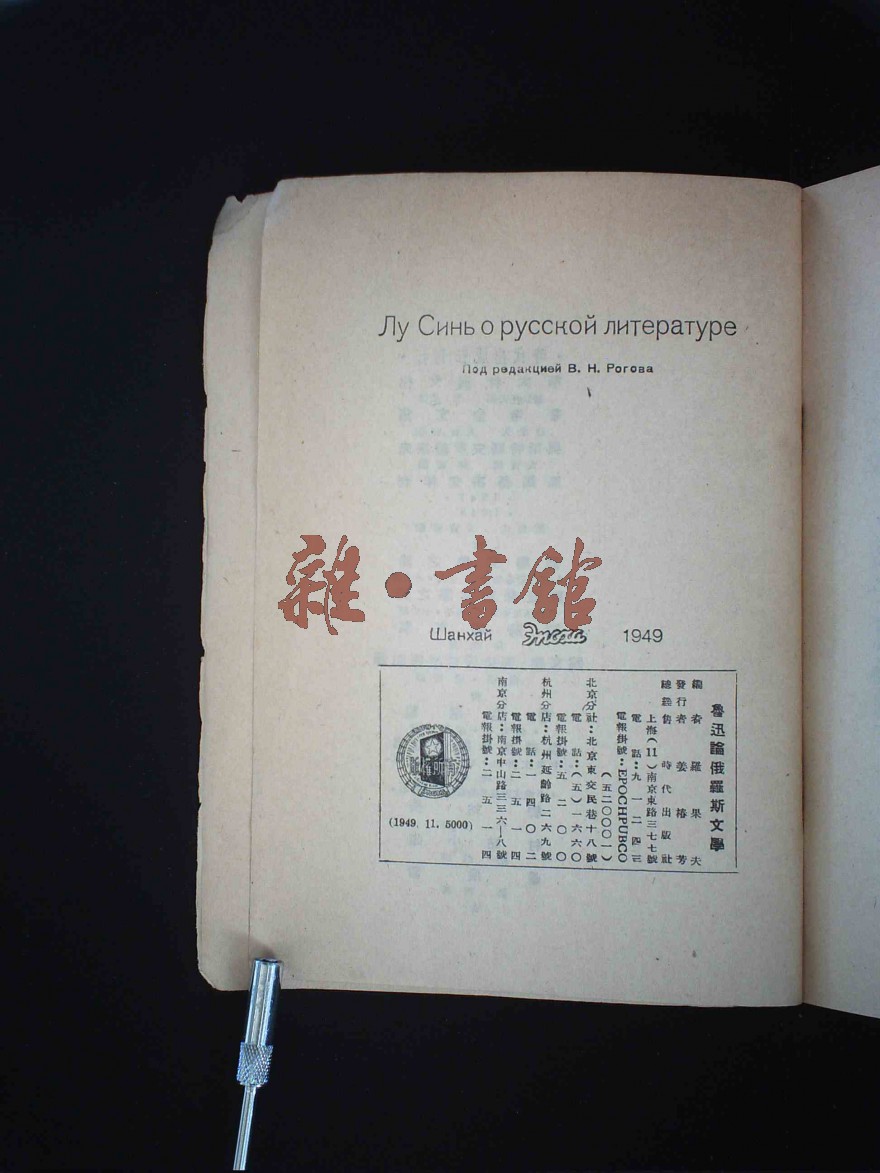 Лу Синь о русской литературе
Под редакцией В. Н. Рогова
雜·書舘
Шанхай Эпоха 1949
魯迅論俄羅斯文學
編者 羅果夫
發行者 姜椿芳
總經售 時代出版社
上海(11)南京東路三七七號
電話:九一二四三
電報掛號:EPOCHPUBCO
(五二〇〇〇一)
北京分社:北京東交民巷十八號
電話:(五)一六六〇
電報掛號:五二〇〇
杭州分店:杭州延齡路二六九號
電話:一四〇二
電報掛號:二五一四
南京分店:南京中山路三三六—八號
電報掛號:二五一四
(1949. 11. 5000)